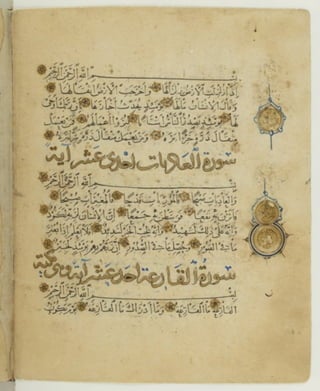 بسم الله الرحمن الرحيم
إذا زلزلت الأرض زلزالها وأخرجت الأرض أثقالها
وقال الإنسان ما لها يومئذ تحدث أخبارها بأن ربك أوحى
لها يومئذ يصدر الناس أشتاتا ليروا أعمالهم فمن يعمل
مثقال ذرة خيرا يره ومن يعمل مثقال ذرة شرا يره
سورة العاديات احدى عشر آية
بسم الله الرحمن الرحيم
والعاديات ضبحا فالموريات قدحا فالمغيرات صبحا
فأثرن به نقعا فوسطن به جمعا إن الإنسان لربه لكنود
وإنه على ذلك لشهيد وإنه لحب الخير لشديد أفلا يعلم إذا بعثر
ما في القبور وحصل ما في الصدور إن ربهم بهم يومئذ لخبير
سورة القارعة احدى عشر آية وهي مكية
بسم الله الرحمن الرحيم
القارعة ما القارعة وما أدراك ما القارعة يوم يكون